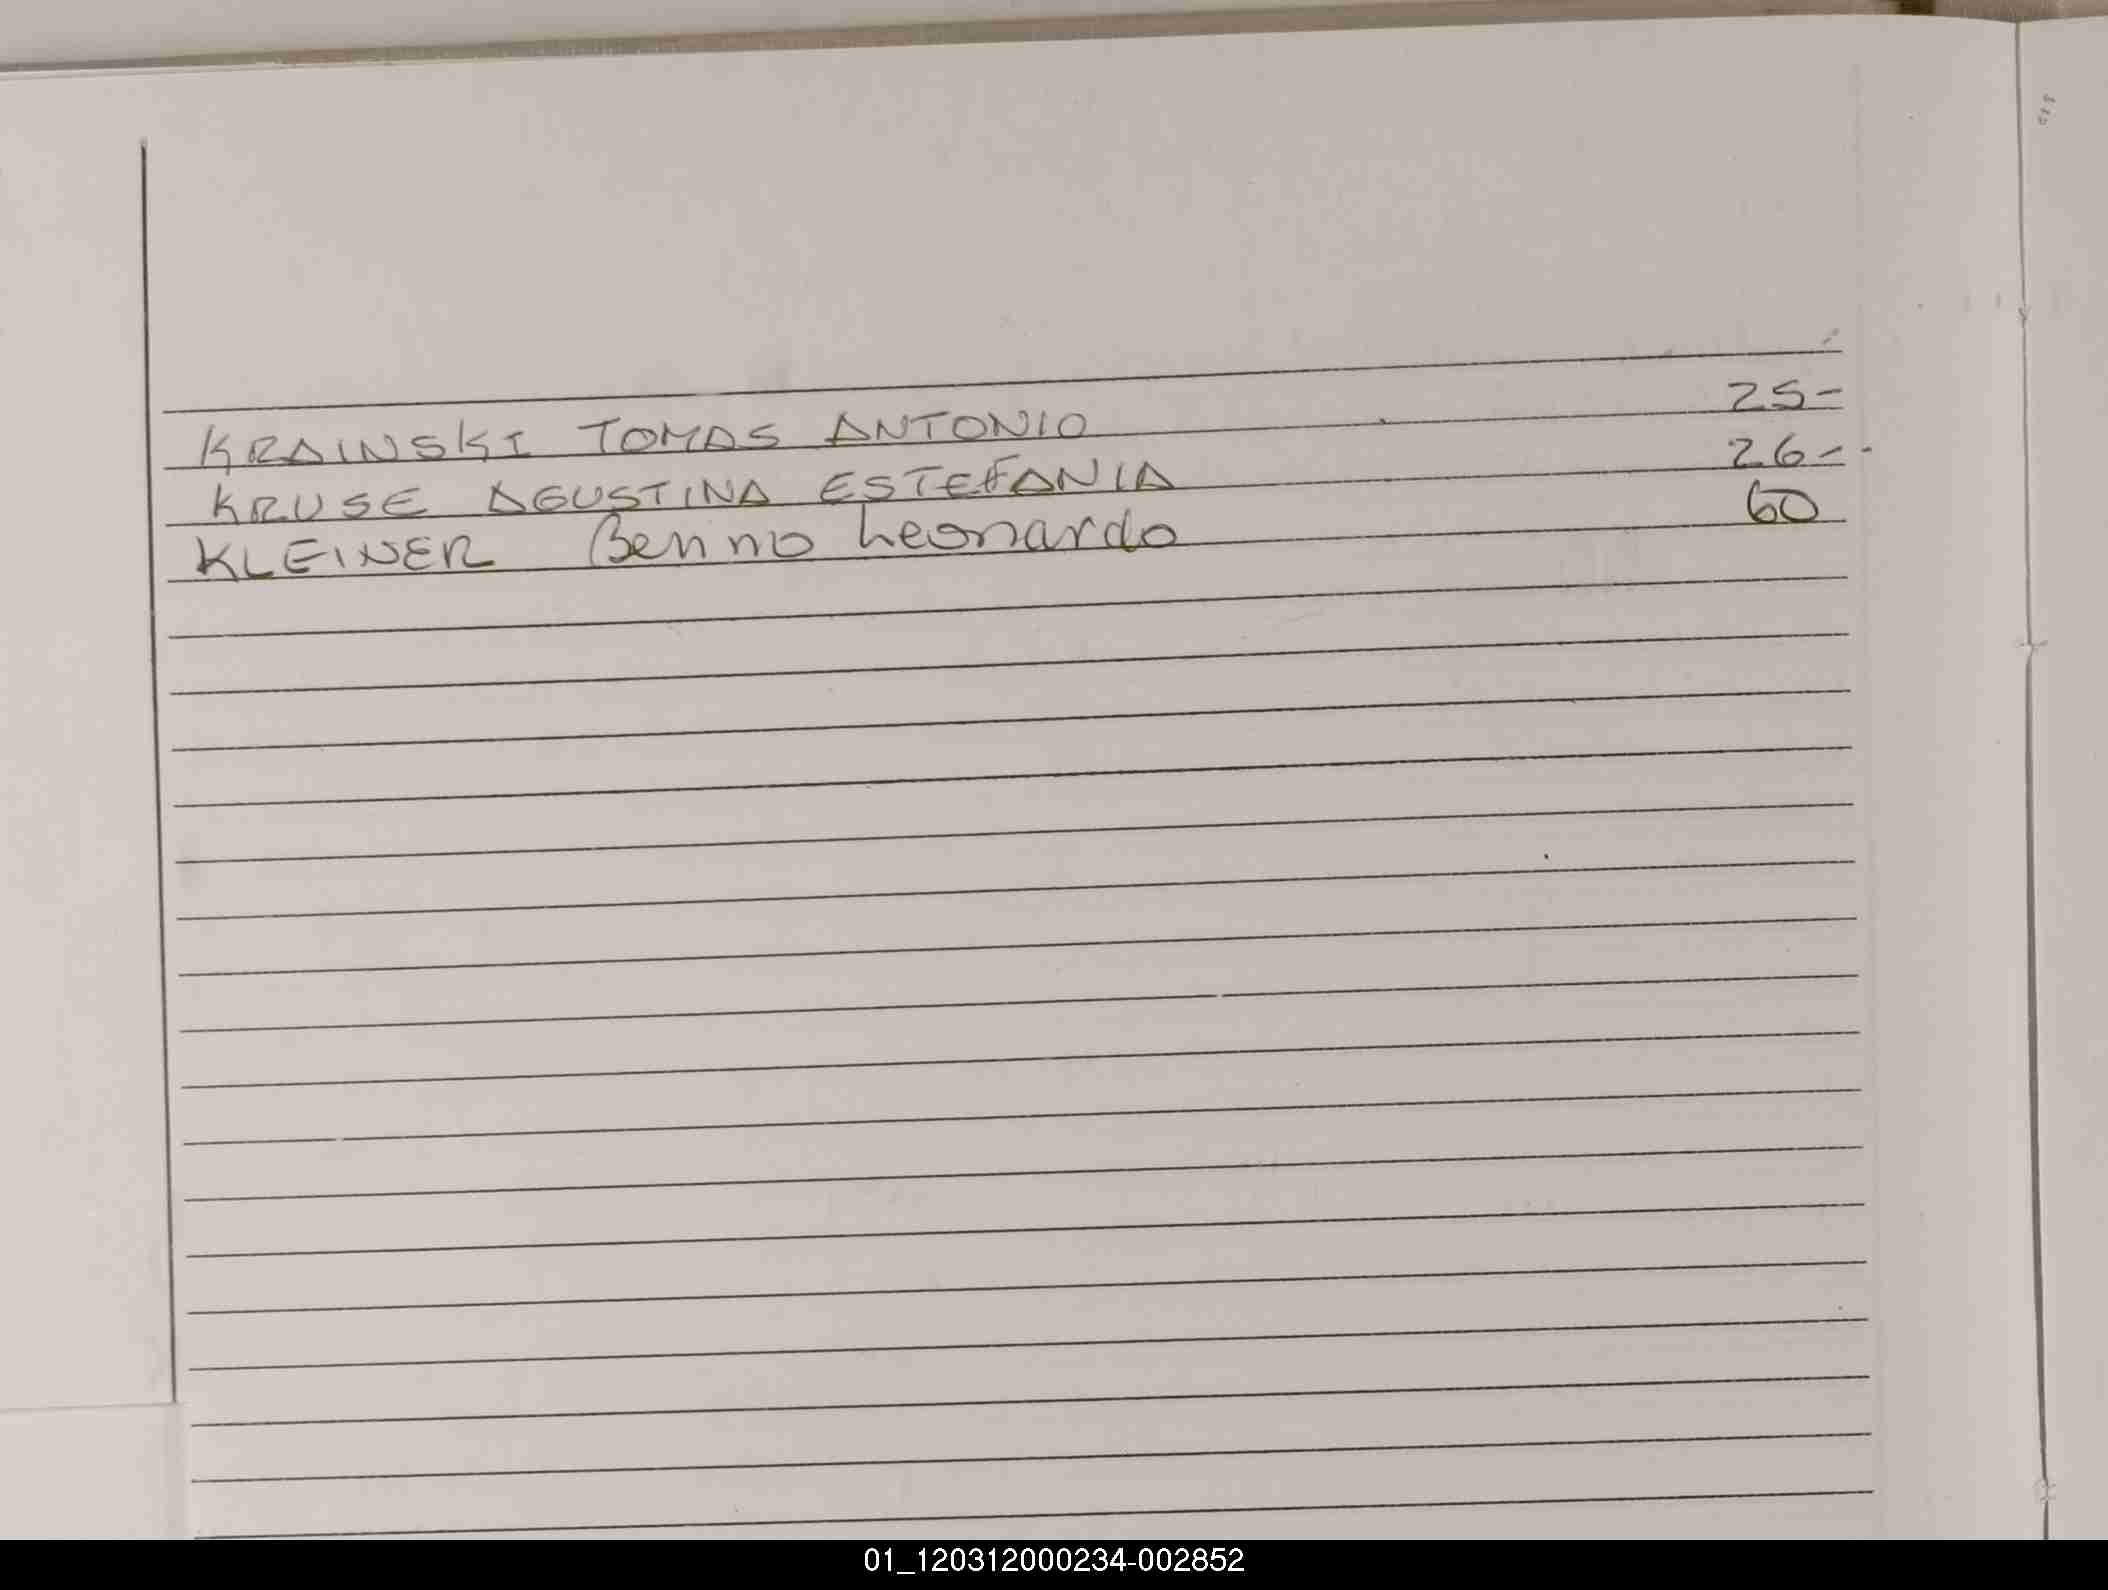 KRAINSKI TOMAS ANTONIO 25-
KRUSE AGUSTINA ESTEFANIA 26-
KLEINER Benno Leonardo 60
01_120312000234-002852